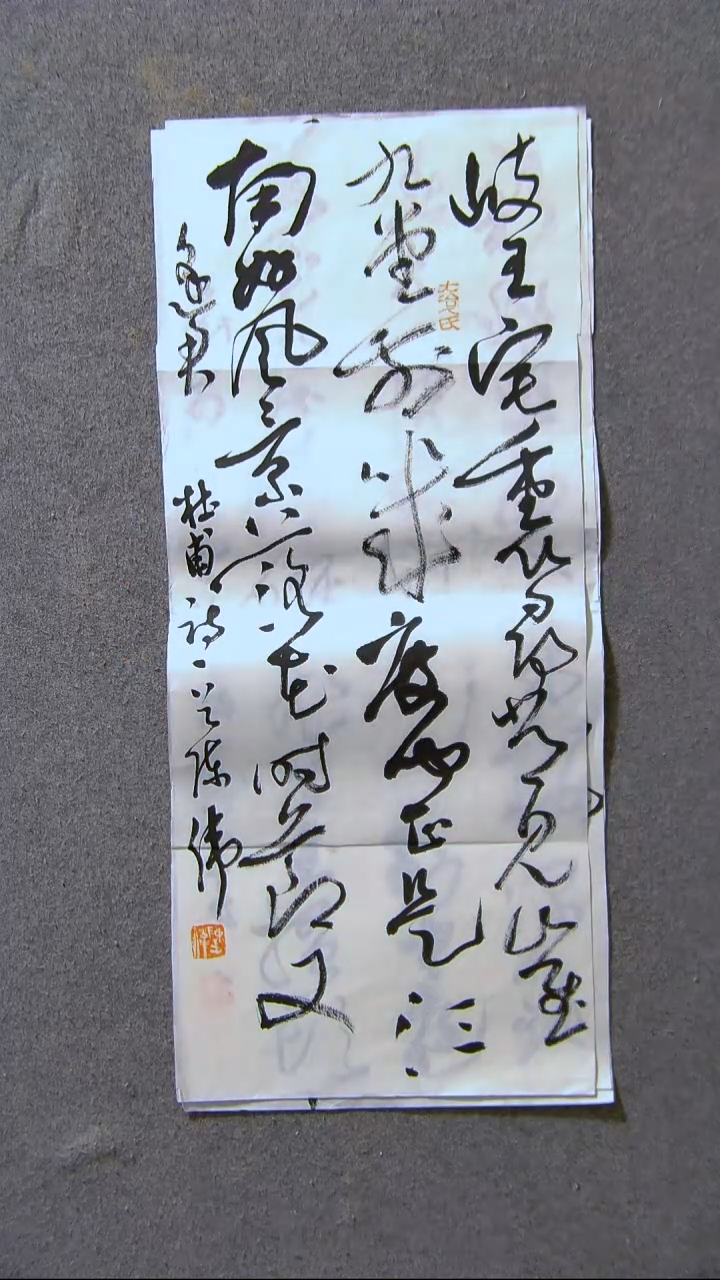 岐王宅裏尋常見崔
九堂前幾度聞正是江
南好风景落花时節又
逢君
杜甫诗一首陈伟